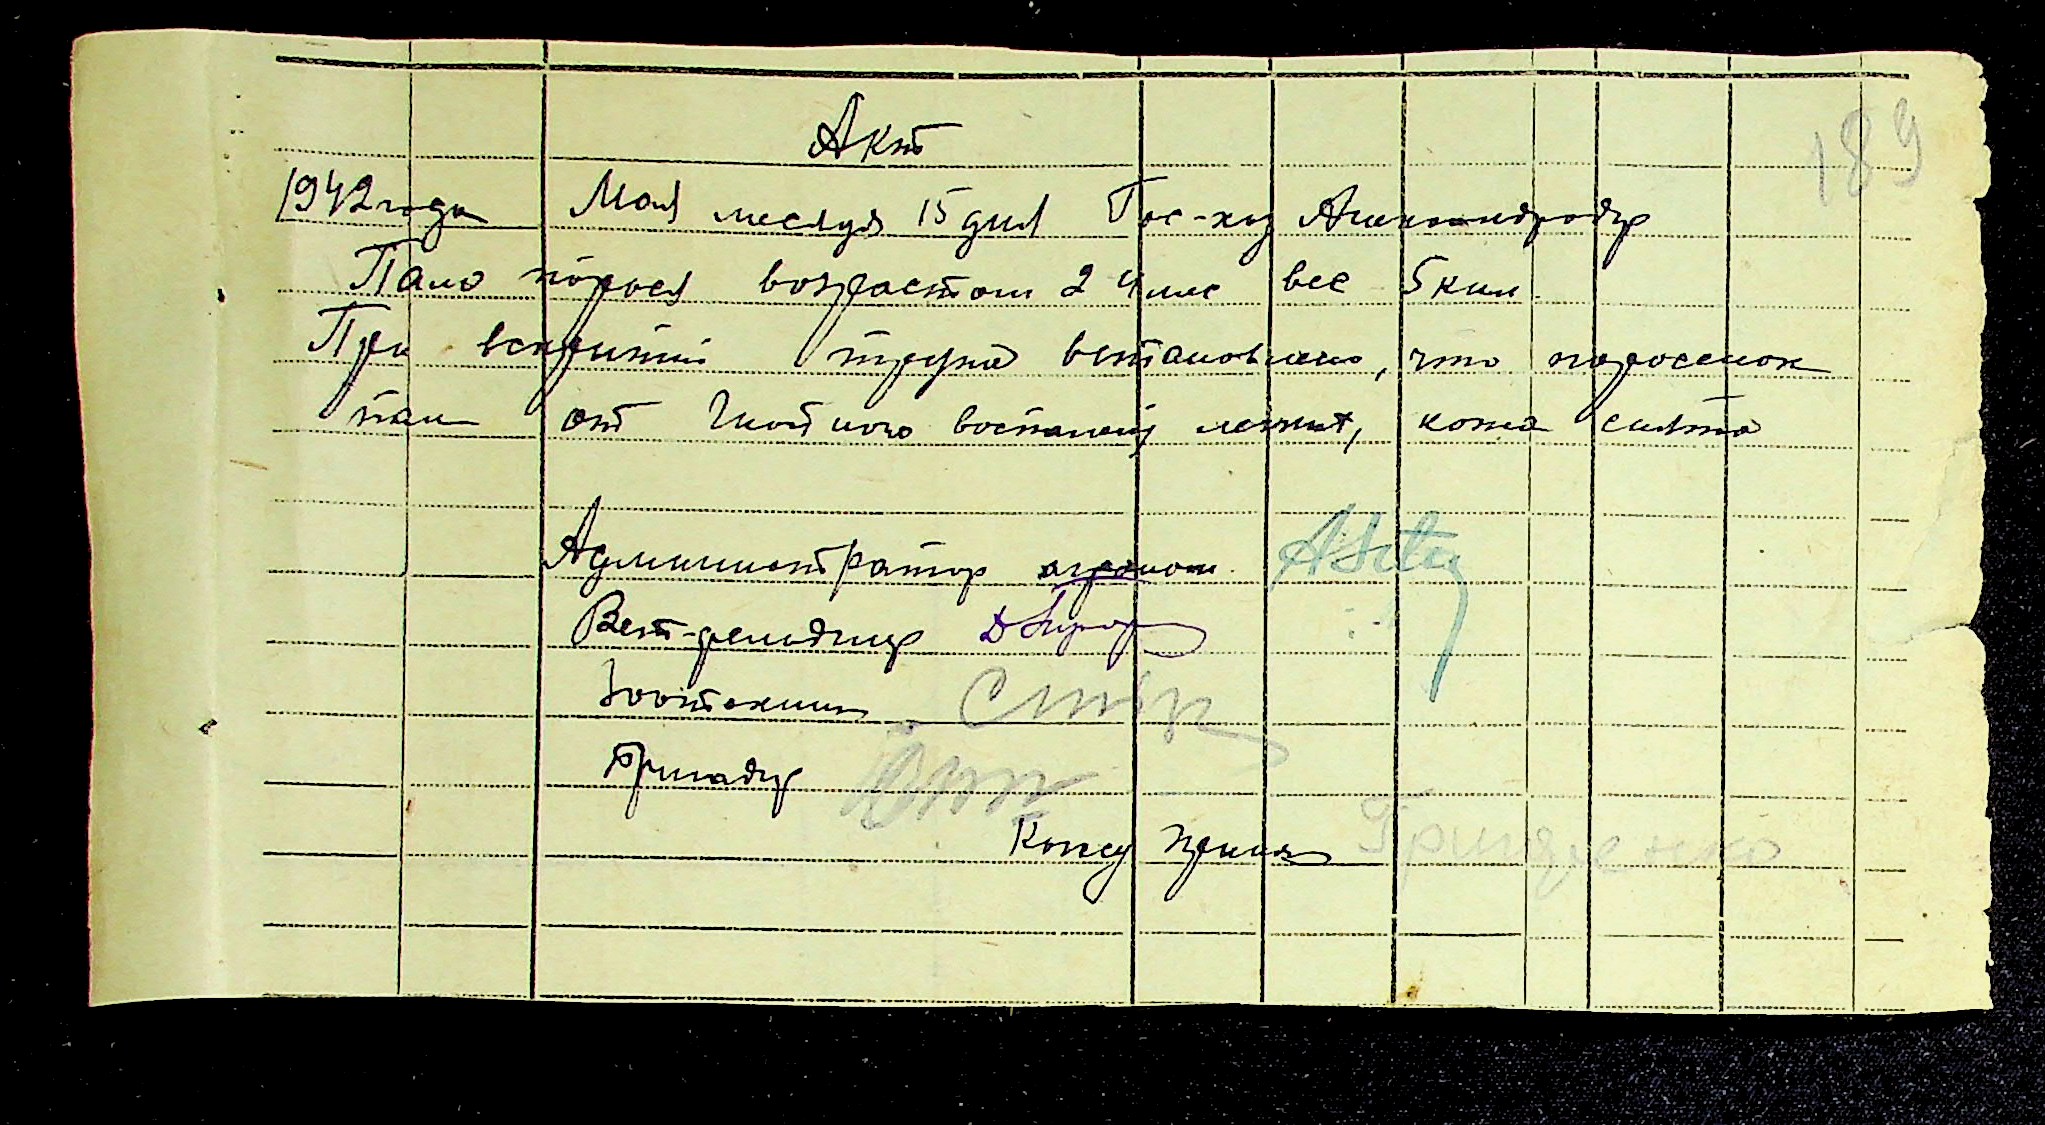 189
Акт
1942 года Мая месяця 15 дня Гос-хоз Александродар
Пало порося возрастом 2 мес вес 5 кил.
При вскритии трупа встановлено, что поросенок
пал от воспаления легких, кожа снята
Администратор агроном
Вет-фельдшер
Зоотехник
Бригадир
Кожу принял Грицаенко